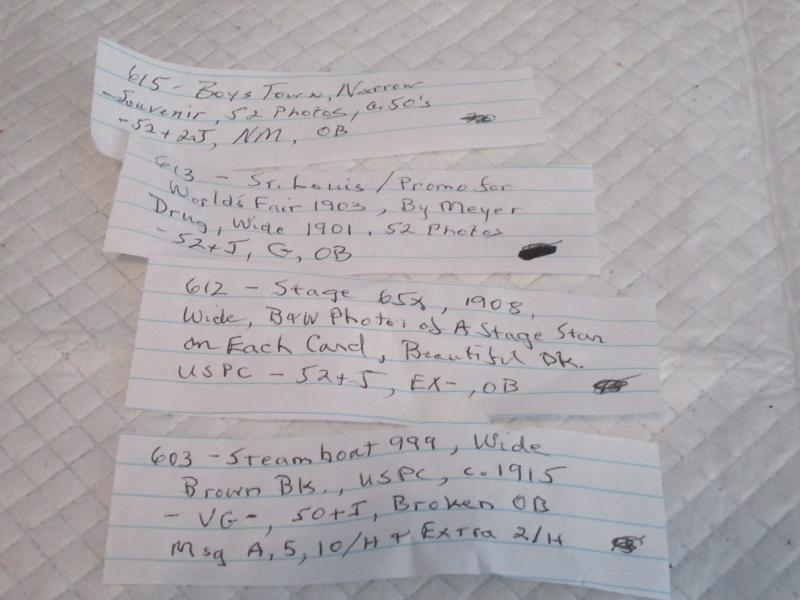 615 - Boys Town, Narrow
- Souvenir, 52 Photos, c. 50's
- 52 + 2J, NM, OB
613 - St. Louis / Promo for
World's Fair 1903, By Meyer
Drug, Wide 1901, 52 Photos
- 52 + J, G, OB
612 - Stage 65x, 1908,
Wide, B&W Photos of A Stage Star
on Each Card, Beautiful Dk.
USPC - 52 + J, EX-, OB
603 - Steamboat 999, Wide
Brown Bk., USPC, c. 1915
- VG-, 50 + J, Broken OB
Msg A, 5, 10/H + Extra 2/H